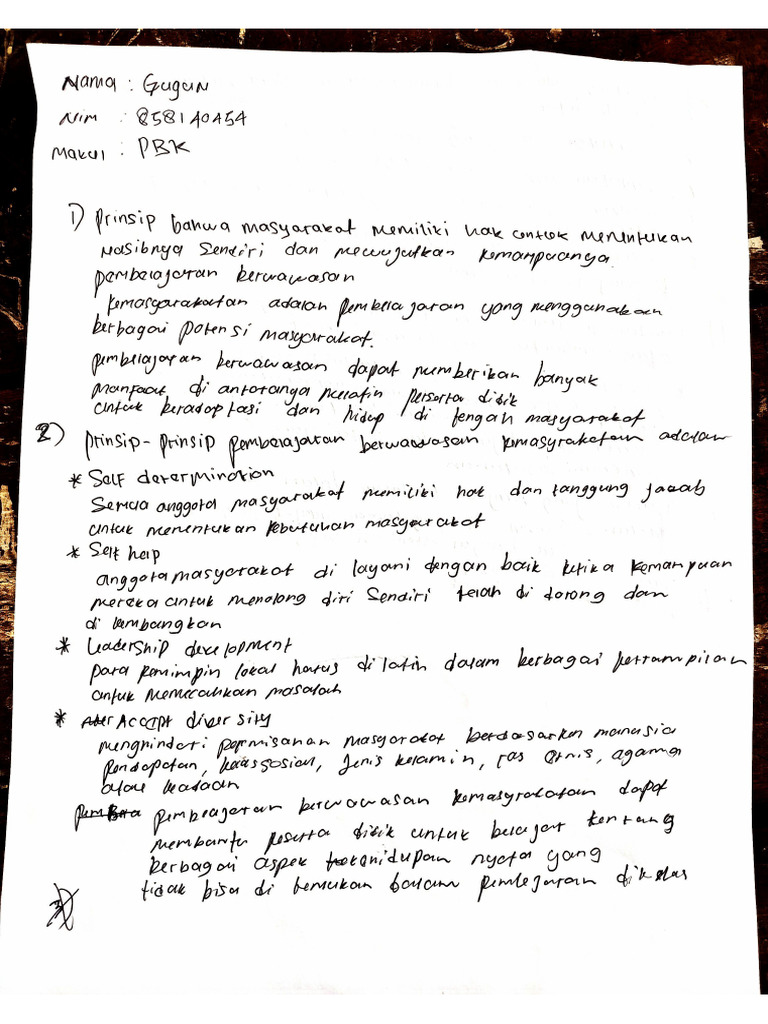 Nama : Gugun
Nim : 858140454
Makul : PBK
1) Prinsip bahwa masyarakat memiliki hak untuk menentukan
nasibnya sendiri dan mewujutkan kemampuanya.
pembelajaran berwawasan
kemasyarakatan adalah pembelajaran yang menggunakan
berbagai potensi masyarakat.
pembelajaran berwawasan dapat memberikan banyak
manfaat di antaranya melatih peserta didik
untuk beradaptasi dan hidup di tengah masyarakat
2) prinsip-prinsip pembelajaran berwawasan kemasyrakatan adalah
* Self determination
Semua anggota masyarakat memiliki hak dan tanggung jawab
untuk menentukan kebutuhan masyarakat
* Self help
anggota masyarakat di layani dengan baik ketika kemampuan
mereka untuk menolong diri sendiri telah di dorong dan
di kembangkan
* Leadership development
para pemimpin lokal harus di latih dalam berbagai ketrampilan
untuk memecahkan masalah
* Accept diversity
menghindari pemisahan masyarakat berdasarkan manusia
pendapatan, kelas sosial, jenis kelamin, ras etnis, agama
atau keadaan
pembelajaran berwawasan kemasyrakatan dapat
membantu peserta didik untuk belajar tentang
berbagai aspek kehidupan nyata yang
tidak bisa di temukan dalam pembelajaran dikelas